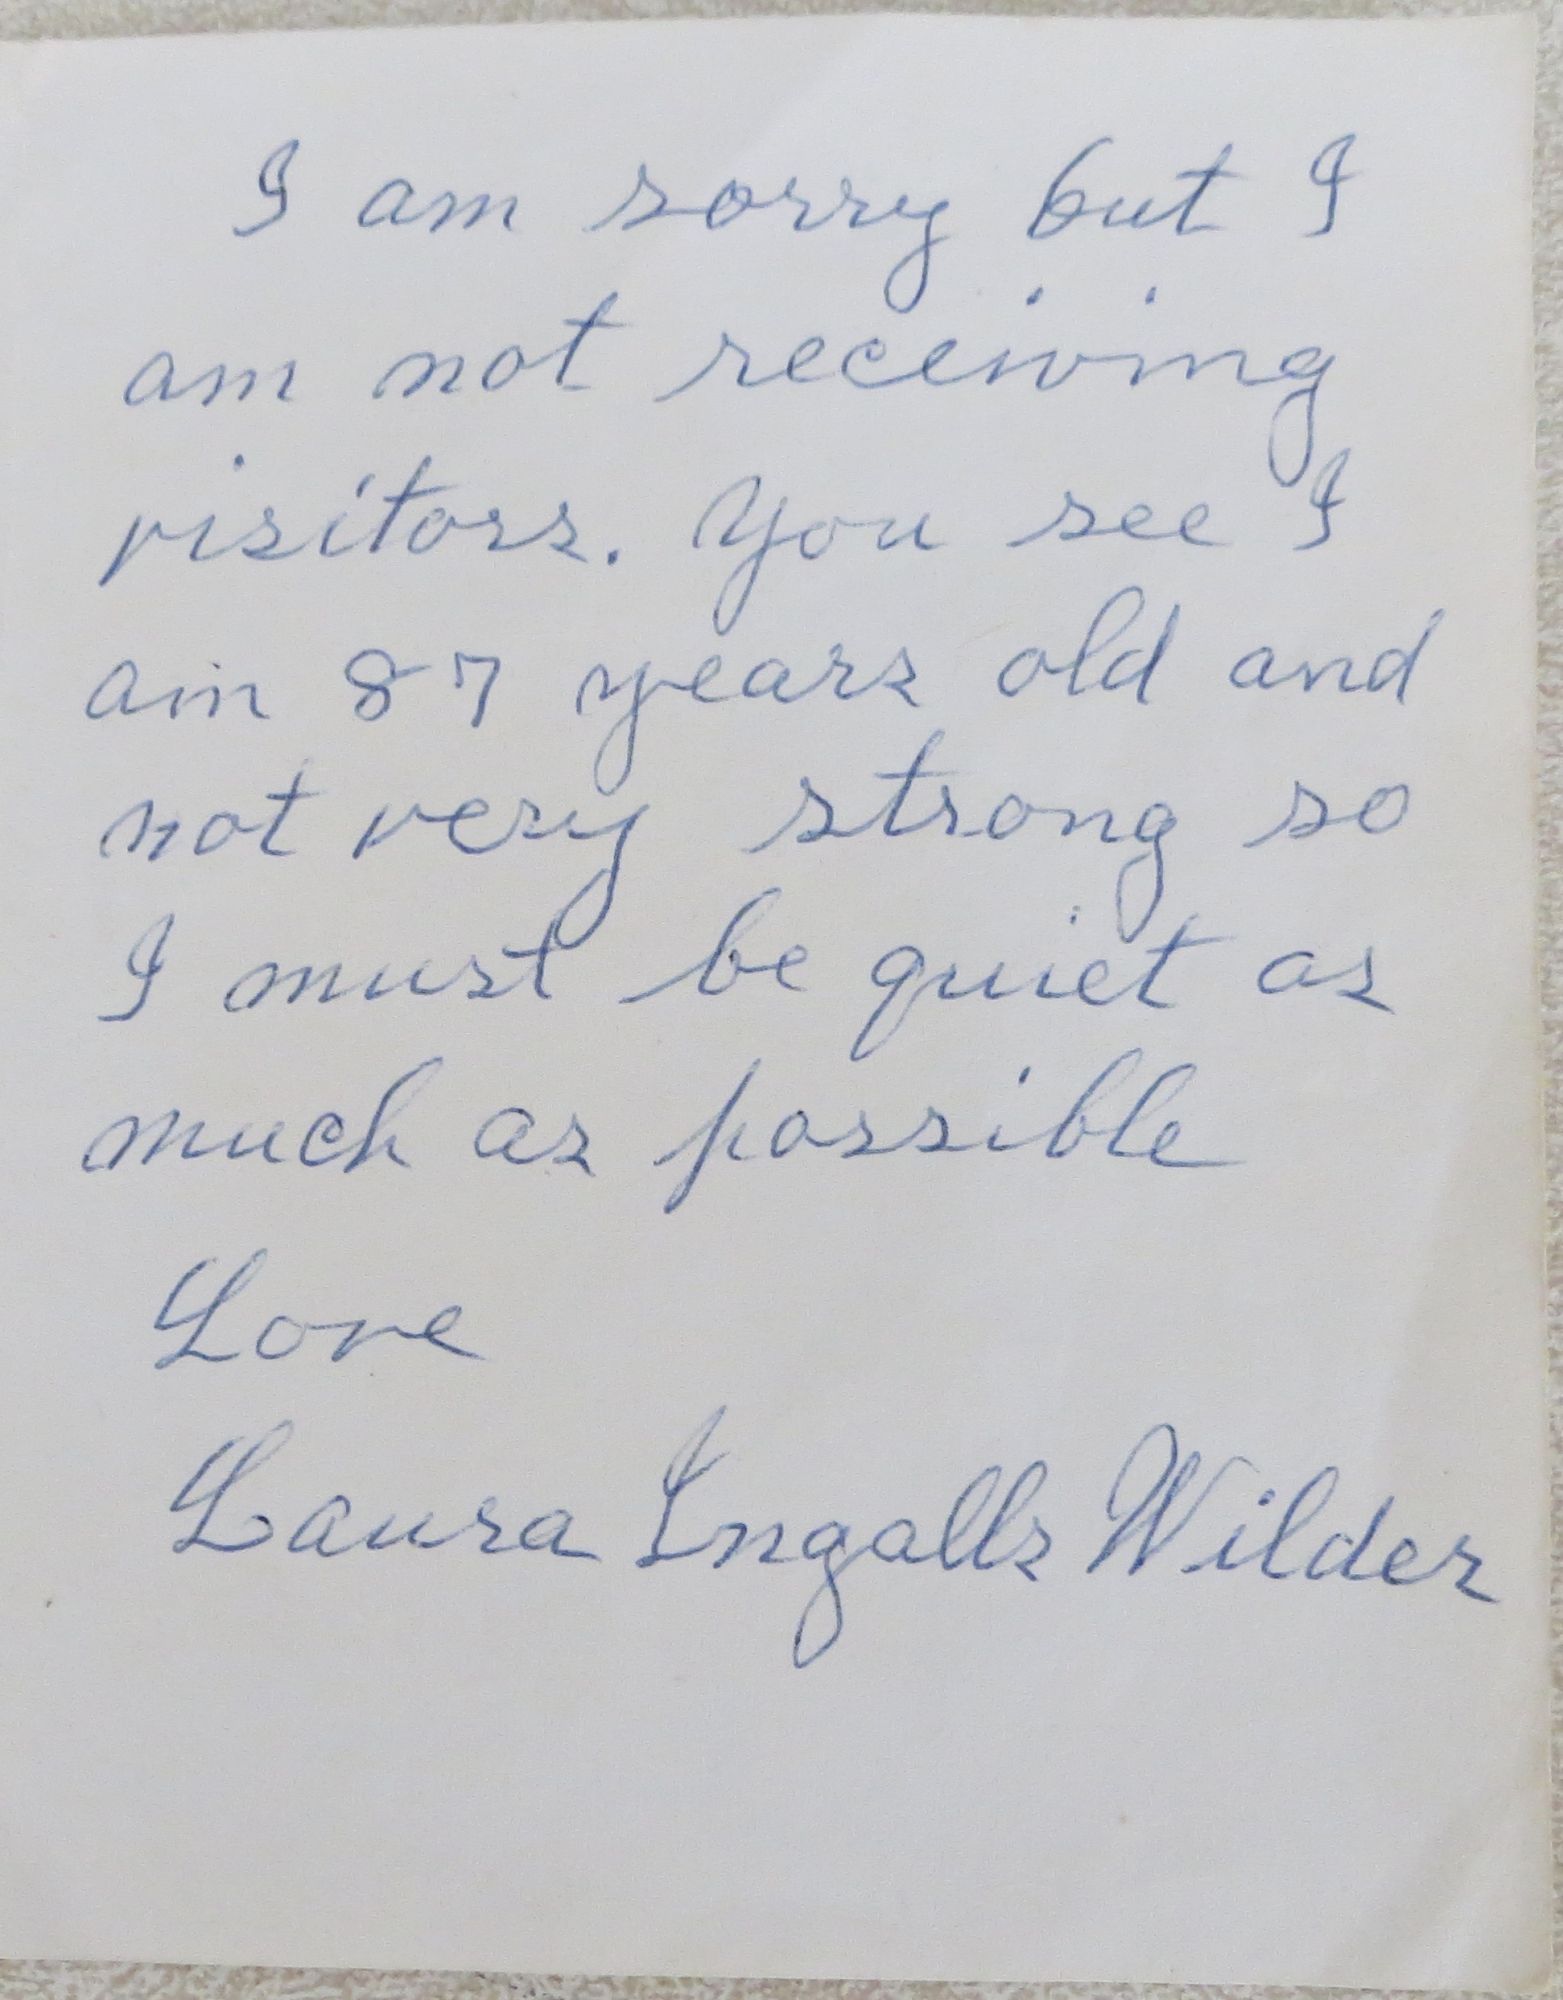 I am sorry but I
am not receiving
visitors. You see I
am 87 years old and
not very strong so
I must be quiet as
much as possible
Love
Laura Ingalls Wilder